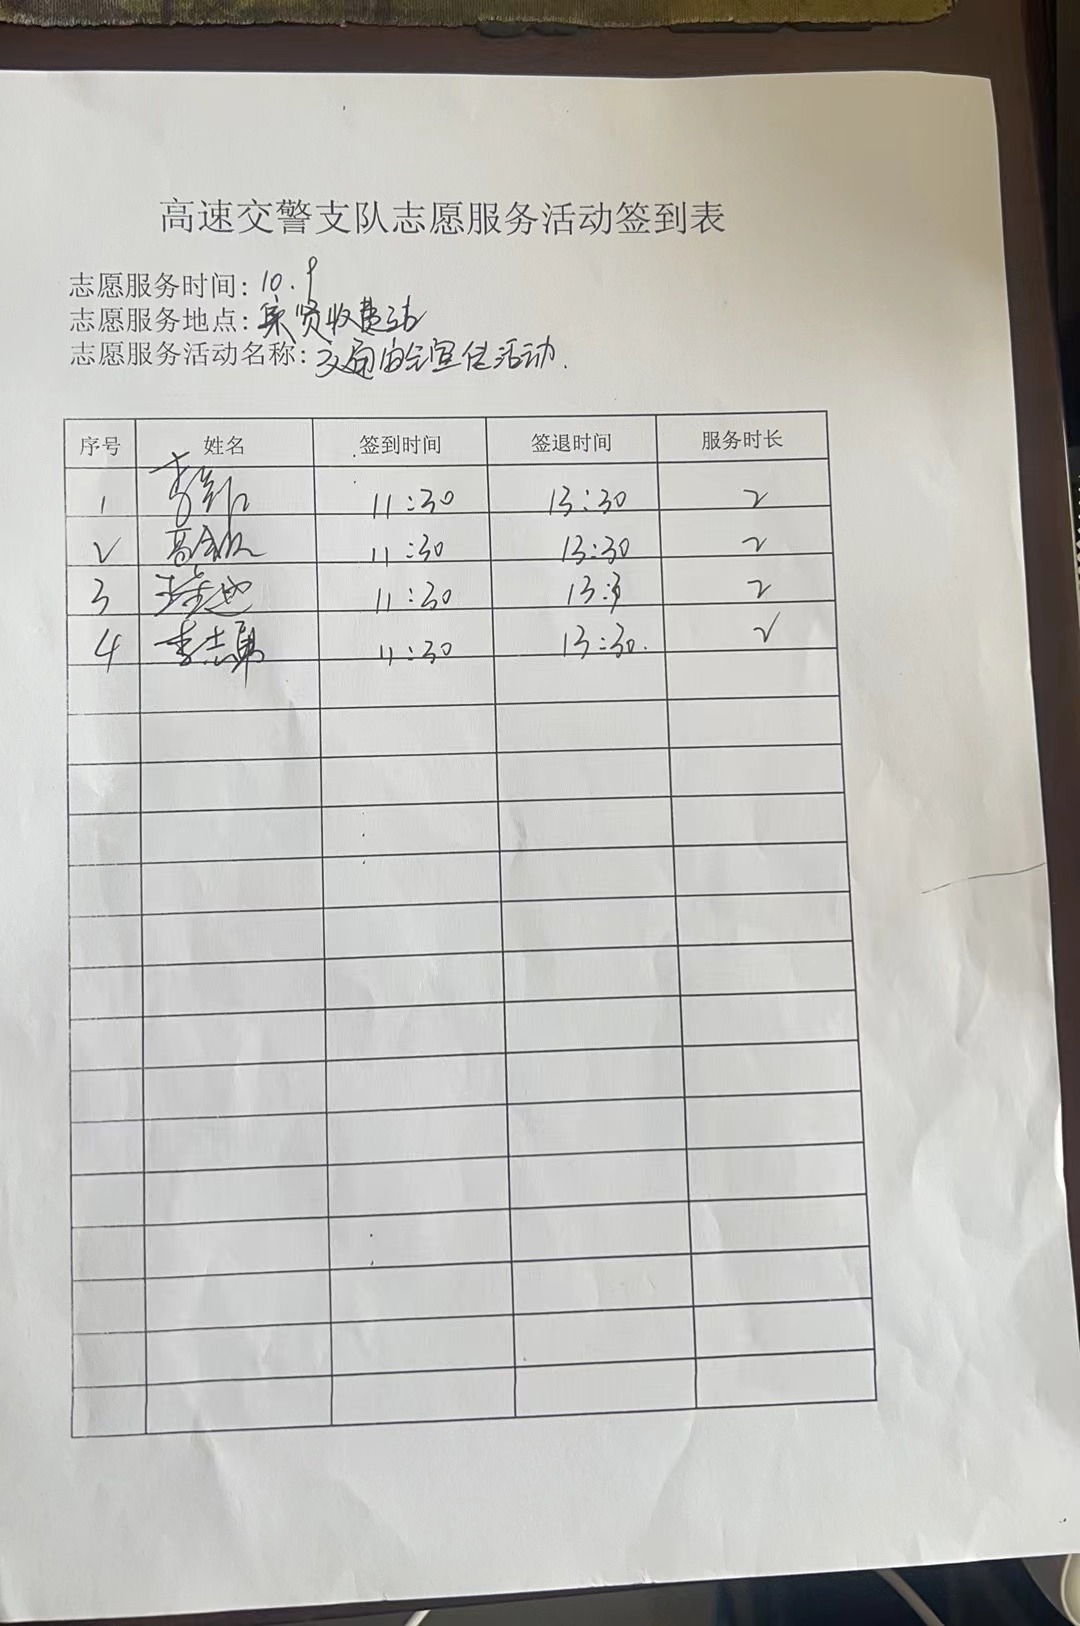 高速交警支队志愿服务活动签到表
志愿服务时间：10.9
志愿服务地点：集贤收费站
志愿服务活动名称：交通安全宣传活动.
序号 姓名 签到时间 签退时间 服务时长
1 李 11:30 13:30 2
2 高 11:30 13:30 2
3 11:30 13:3 2
4 李志勇 11:30 13:30. 2